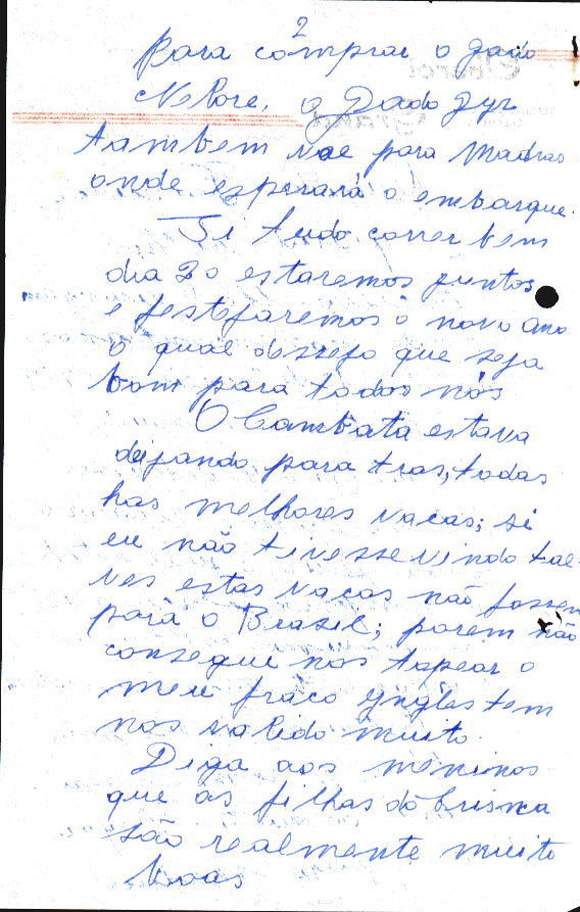 2
para comprar o gado
Nelore, o Gado Gyr
tambem vae para Madras
onde esperará o embarque.
Si tudo correr bem
dia 20 estaremos juntos
e festejaremos o novo ano
o qual dezzejo que seja
bom para todos nós
O Cambata estava
deijando para tras, todas
has melhores vacas; si
eu não tivesse vindo tal-
ves estas vacas não fossem
para o Brazil; porem não
consegue nos tapear o
meu fraco ynglês tem
nos valido muito.
Diga aos meninos
que as filhas do Crisna
são realmente muito
boas